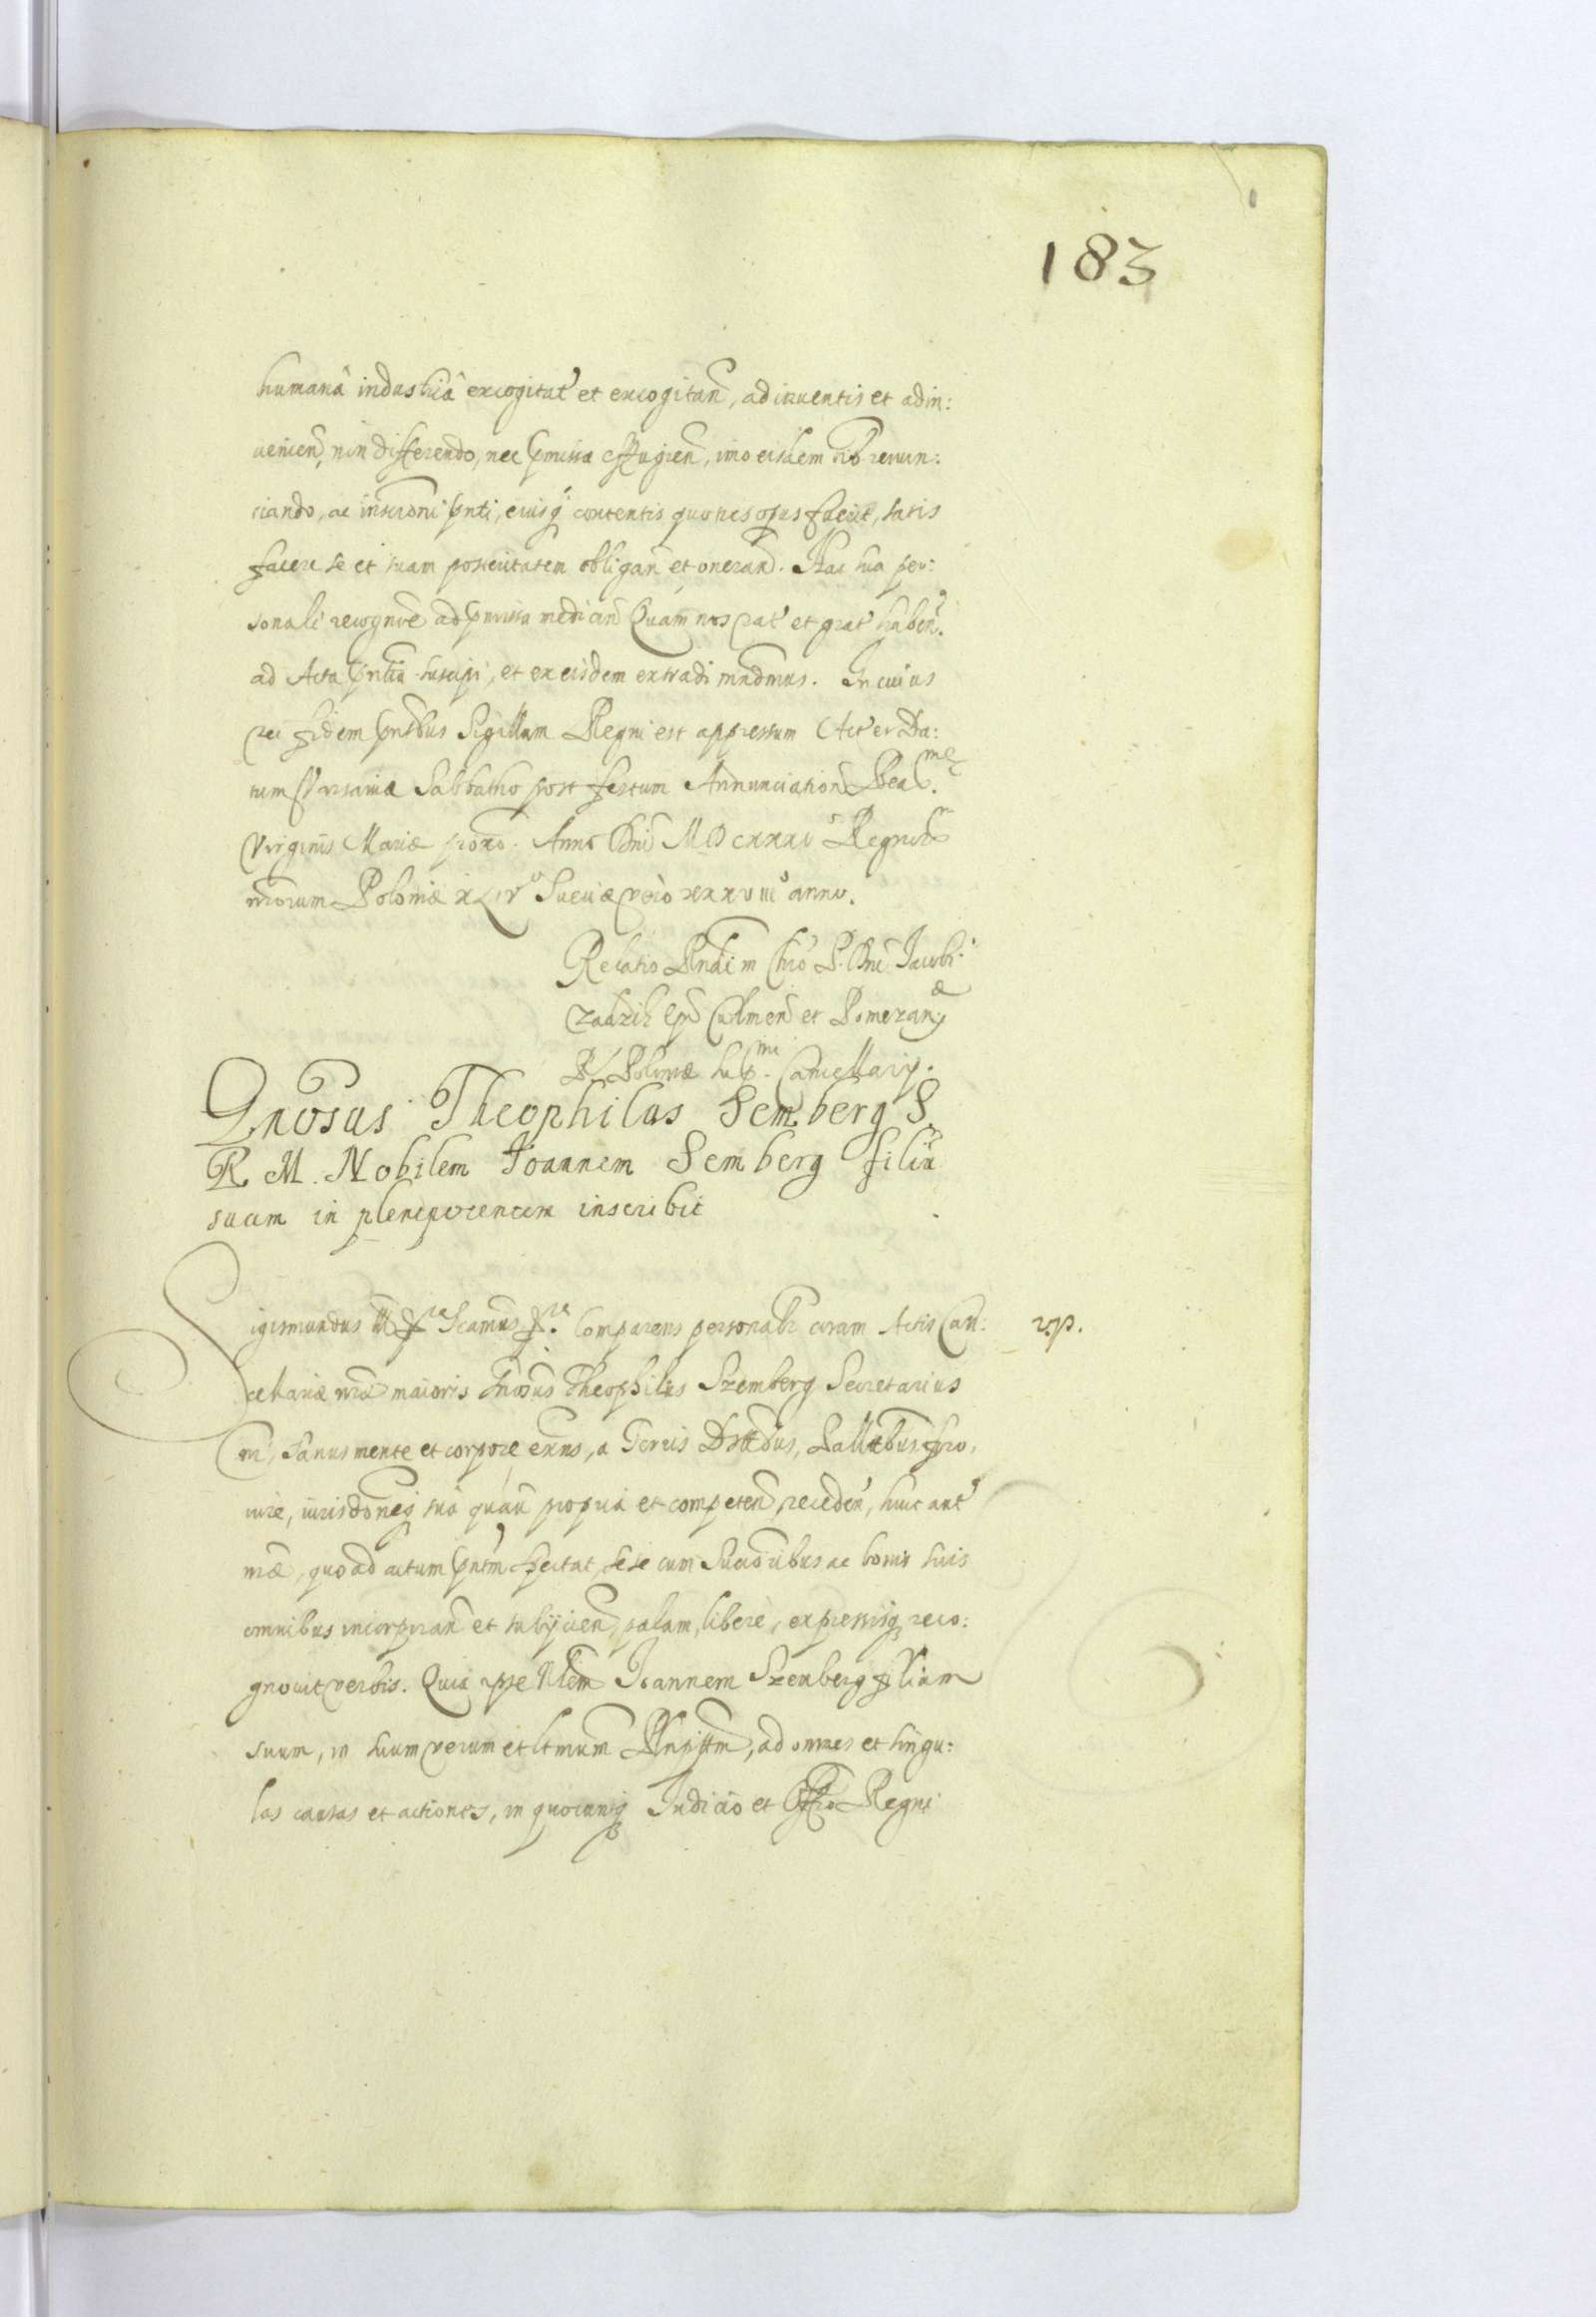 183
humanâ industriâ excogitat et excogitan, adinuentis et adin:
uenien, non differendo, nec pmissa effugien, imo eisdem renun:
ciando, ac inscrioni pnti, eiusq contentis quoties opus fuerit, satis
facere se et suam posteritatem obligan et oneran. Hac sua per:
sonali recognoe ad pmissa median Quam nos rat et grat haben.
ad Acta pntia suscipi, et ex eisdem extradi mndmus. In cuius
rei fidem pntibus Sigillum Regni est appressum Act et Da:
tum Varsauiæ Sabbatho post festum Annunciation Bea me
Virginis Mariæ proxo. Anno Dni MDCXXXI Regnor
nrorum Poloniæ XLIV Sueciæ vero XXXVIII anno.
Relatio Rndi in Chro P. Dni Jacobi
Zadzik Epi Culmen et Pomezaniæ
R. Poloniæ sup mi Cancellarij.
Gnosus Theophilus Semberg S.
R. M. Nobilem Joannem Semberg filiu
suum in plenipotentem inscribit
Sigismundus III etc Scamus etc. Comparens personalr coram Actis Can: r.p.
cellariæ nræ maioris Gnosus Theophilus Szemberg Secretarius
nr, sanus mente et corpore exns, a Terris Distdus, Pallatbus pro,
iure, iurisdoneq sua quau propria et competen, receden, huic aut
nræ, quoad actum pntem spectat, sese cum Succribus ac bonis suis
omnibus incorporan et subijcien, palam, libere, expressisq reco:
gnouit verbis. Quia ipse Nlem Joannem Szemberg filium
suum, in suum verum et ltmum Plnpttm, ad omnes et singu:
las causas et actiones, in quocunq Judicio et Offio Regni